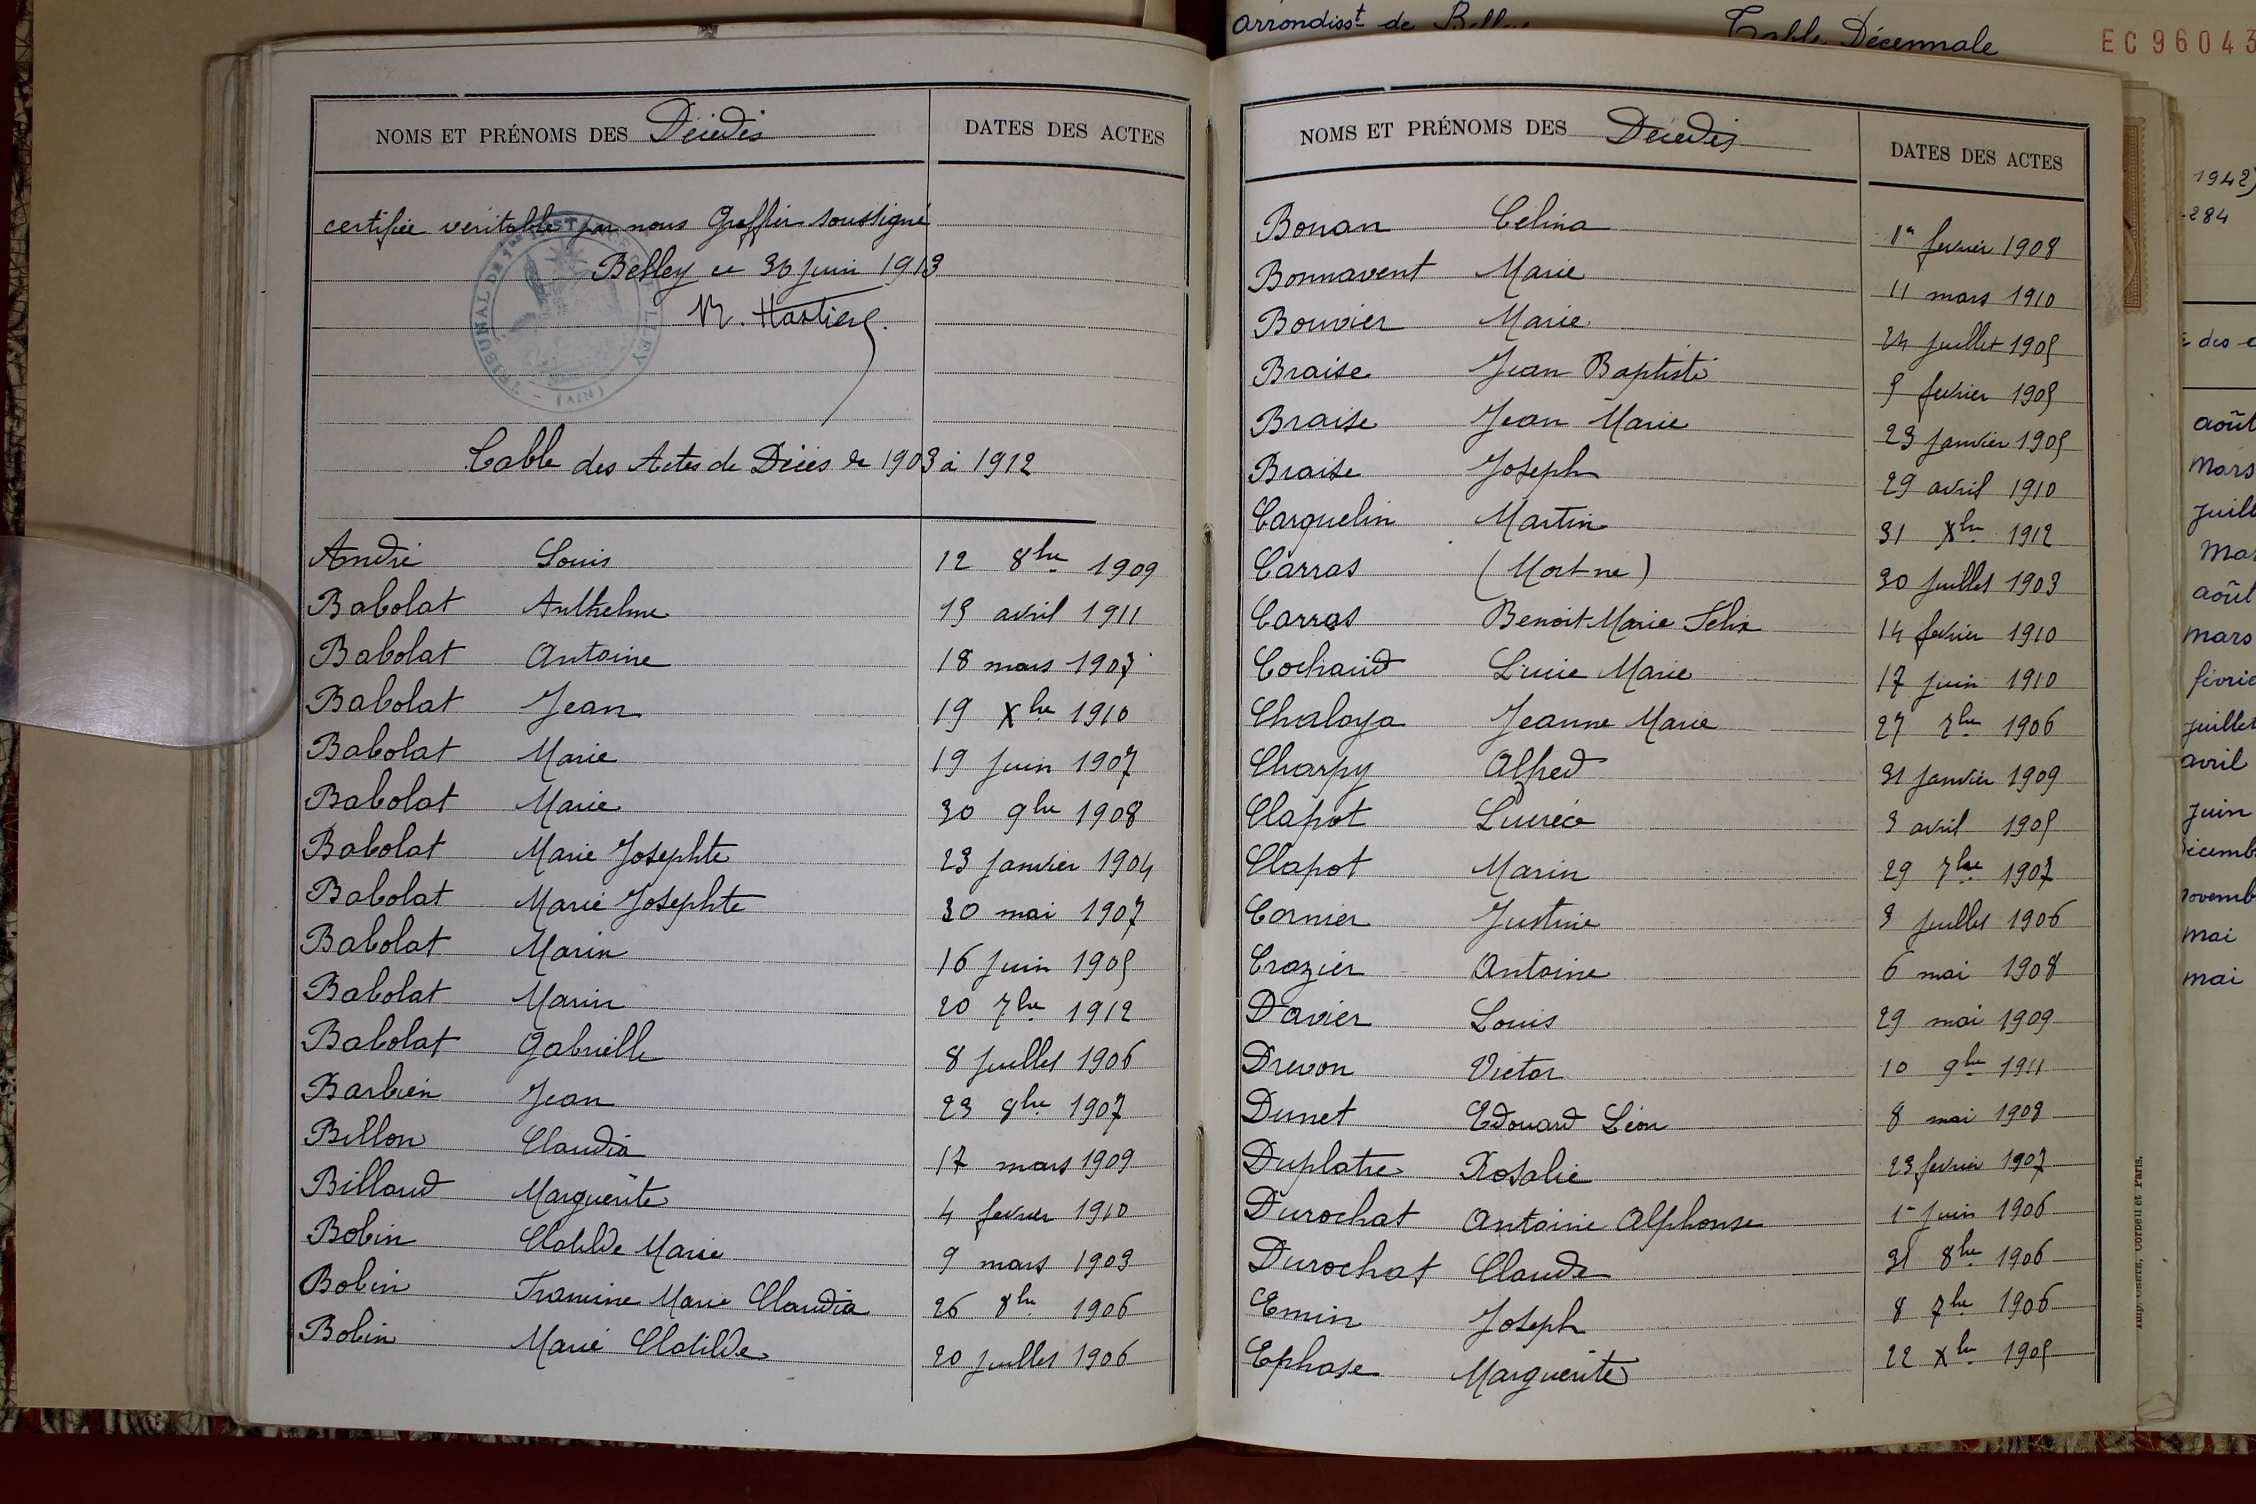 arrondisst de
Table Décennale
EC96043
NOMS ET PRÉNOMS DES Décédés DATES DES ACTES
certifiée véritable par nous Greffier soussigné
Belley le 30 juin 1913
Table des Actes de Décès de 1903 à 1912
André Louis 12 8bre 1909
Babolat Anthelme 15 avril 1911
Babolat Antoine 18 mars 1907
Babolat Jean 19 Xbre 1910
Babolat Marie 19 juin 1907
Babolat Marie 30 9bre 1908
Babolat Marie Josephte 23 janvier 1904
Babolat Marie Josephte 30 mai 1907
Babolat Marin 16 juin 1905
Babolat Marin 20 7bre 1912
Babolat Gabrielle 8 juillet 1906
Barbien Jean 23 8bre 1907
Billon Claudia 17 mars 1909
Billaud Marguerite 4 fevrier 1910
Bobin Clotilde Marie 9 mars 1903
Bobin Francine Marie Claudia 26 8bre 1906
Bobin Marie Clotilde 20 juillet 1906
NOMS ET PRÉNOMS DES Décédés DATES DES ACTES
Bonan Celina 1er fevrier 1908
Bonnavent Marie 11 mars 1910
Bouvier Marie 24 juillet 1905
Braise Jean Baptiste 5 fevrier 1905
Braise Jean Marie 23 janvier 1905
Braise Joseph 29 avril 1910
Carquelin Martin 31 Xbre 1912
Carras (Mort né) 30 juillet 1903
Carras Benoit Marie Felix 14 fevrier 1910
Cochaud Lucie Marie 17 juin 1910
Chaloya Jeanne Marie 27 7bre 1906
Charpy Alfred 31 janvier 1909
Clapot Lucrèce 3 avril 1905
Clapot Marin 29 7bre 1907
Cornier Justine 3 juillet 1906
Crozier Antoine 6 mai 1908
Davier Louis 29 mai 1909
Drevon Victor 10 9bre 1911
Dunet Edouard Léon 8 mai 1908
Duplatre Rosalie 23 fevrier 1907
Durochat Antoine Alphonse 1er juin 1906
Durochat Claude 31 8bre 1906
Emin Joseph 8 7bre 1906
Ephase Marguerite 22 Xbre 1905
1942)
284
des
août
mars
août
mars
juillet
avril
juin
mai
mai